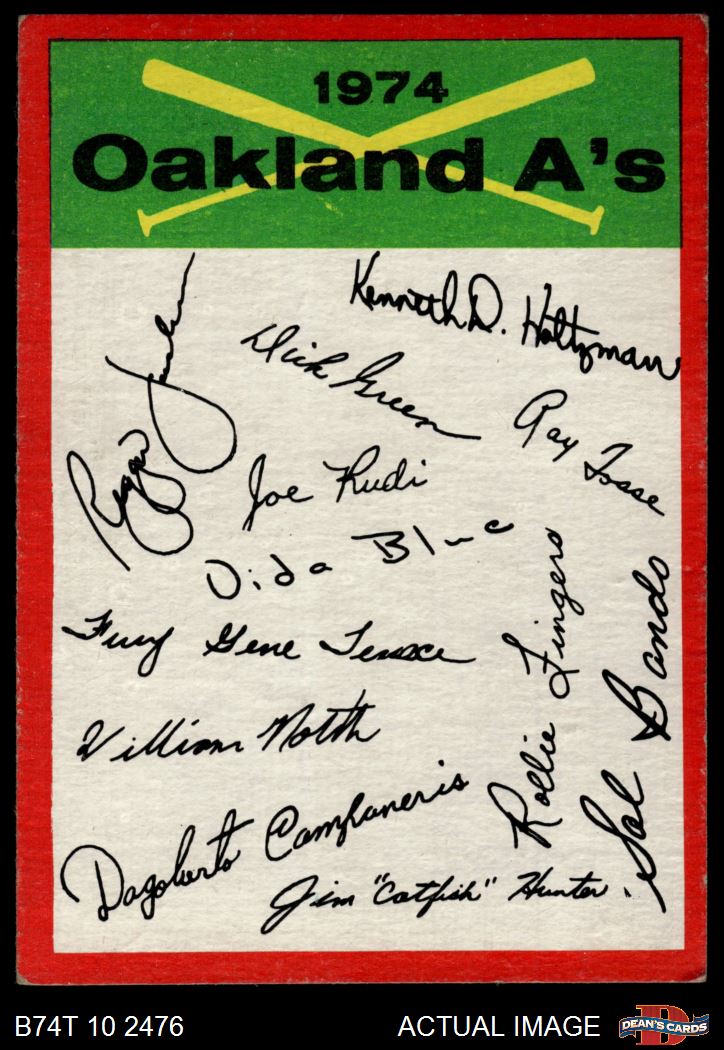 1974
Oakland A's
Kenneth D. Holtzman
Dick Green
Reggie Jackson
Ray Fosse
Joe Rudi
Vida Blue
Fury Gene Tenace
Rollie Fingers
Sal Bando
William North
Dagoberto Campaneris
Jim "Catfish" Hunter.
B74T 10 2476
ACTUAL IMAGE
D
DEAN'S CARDS